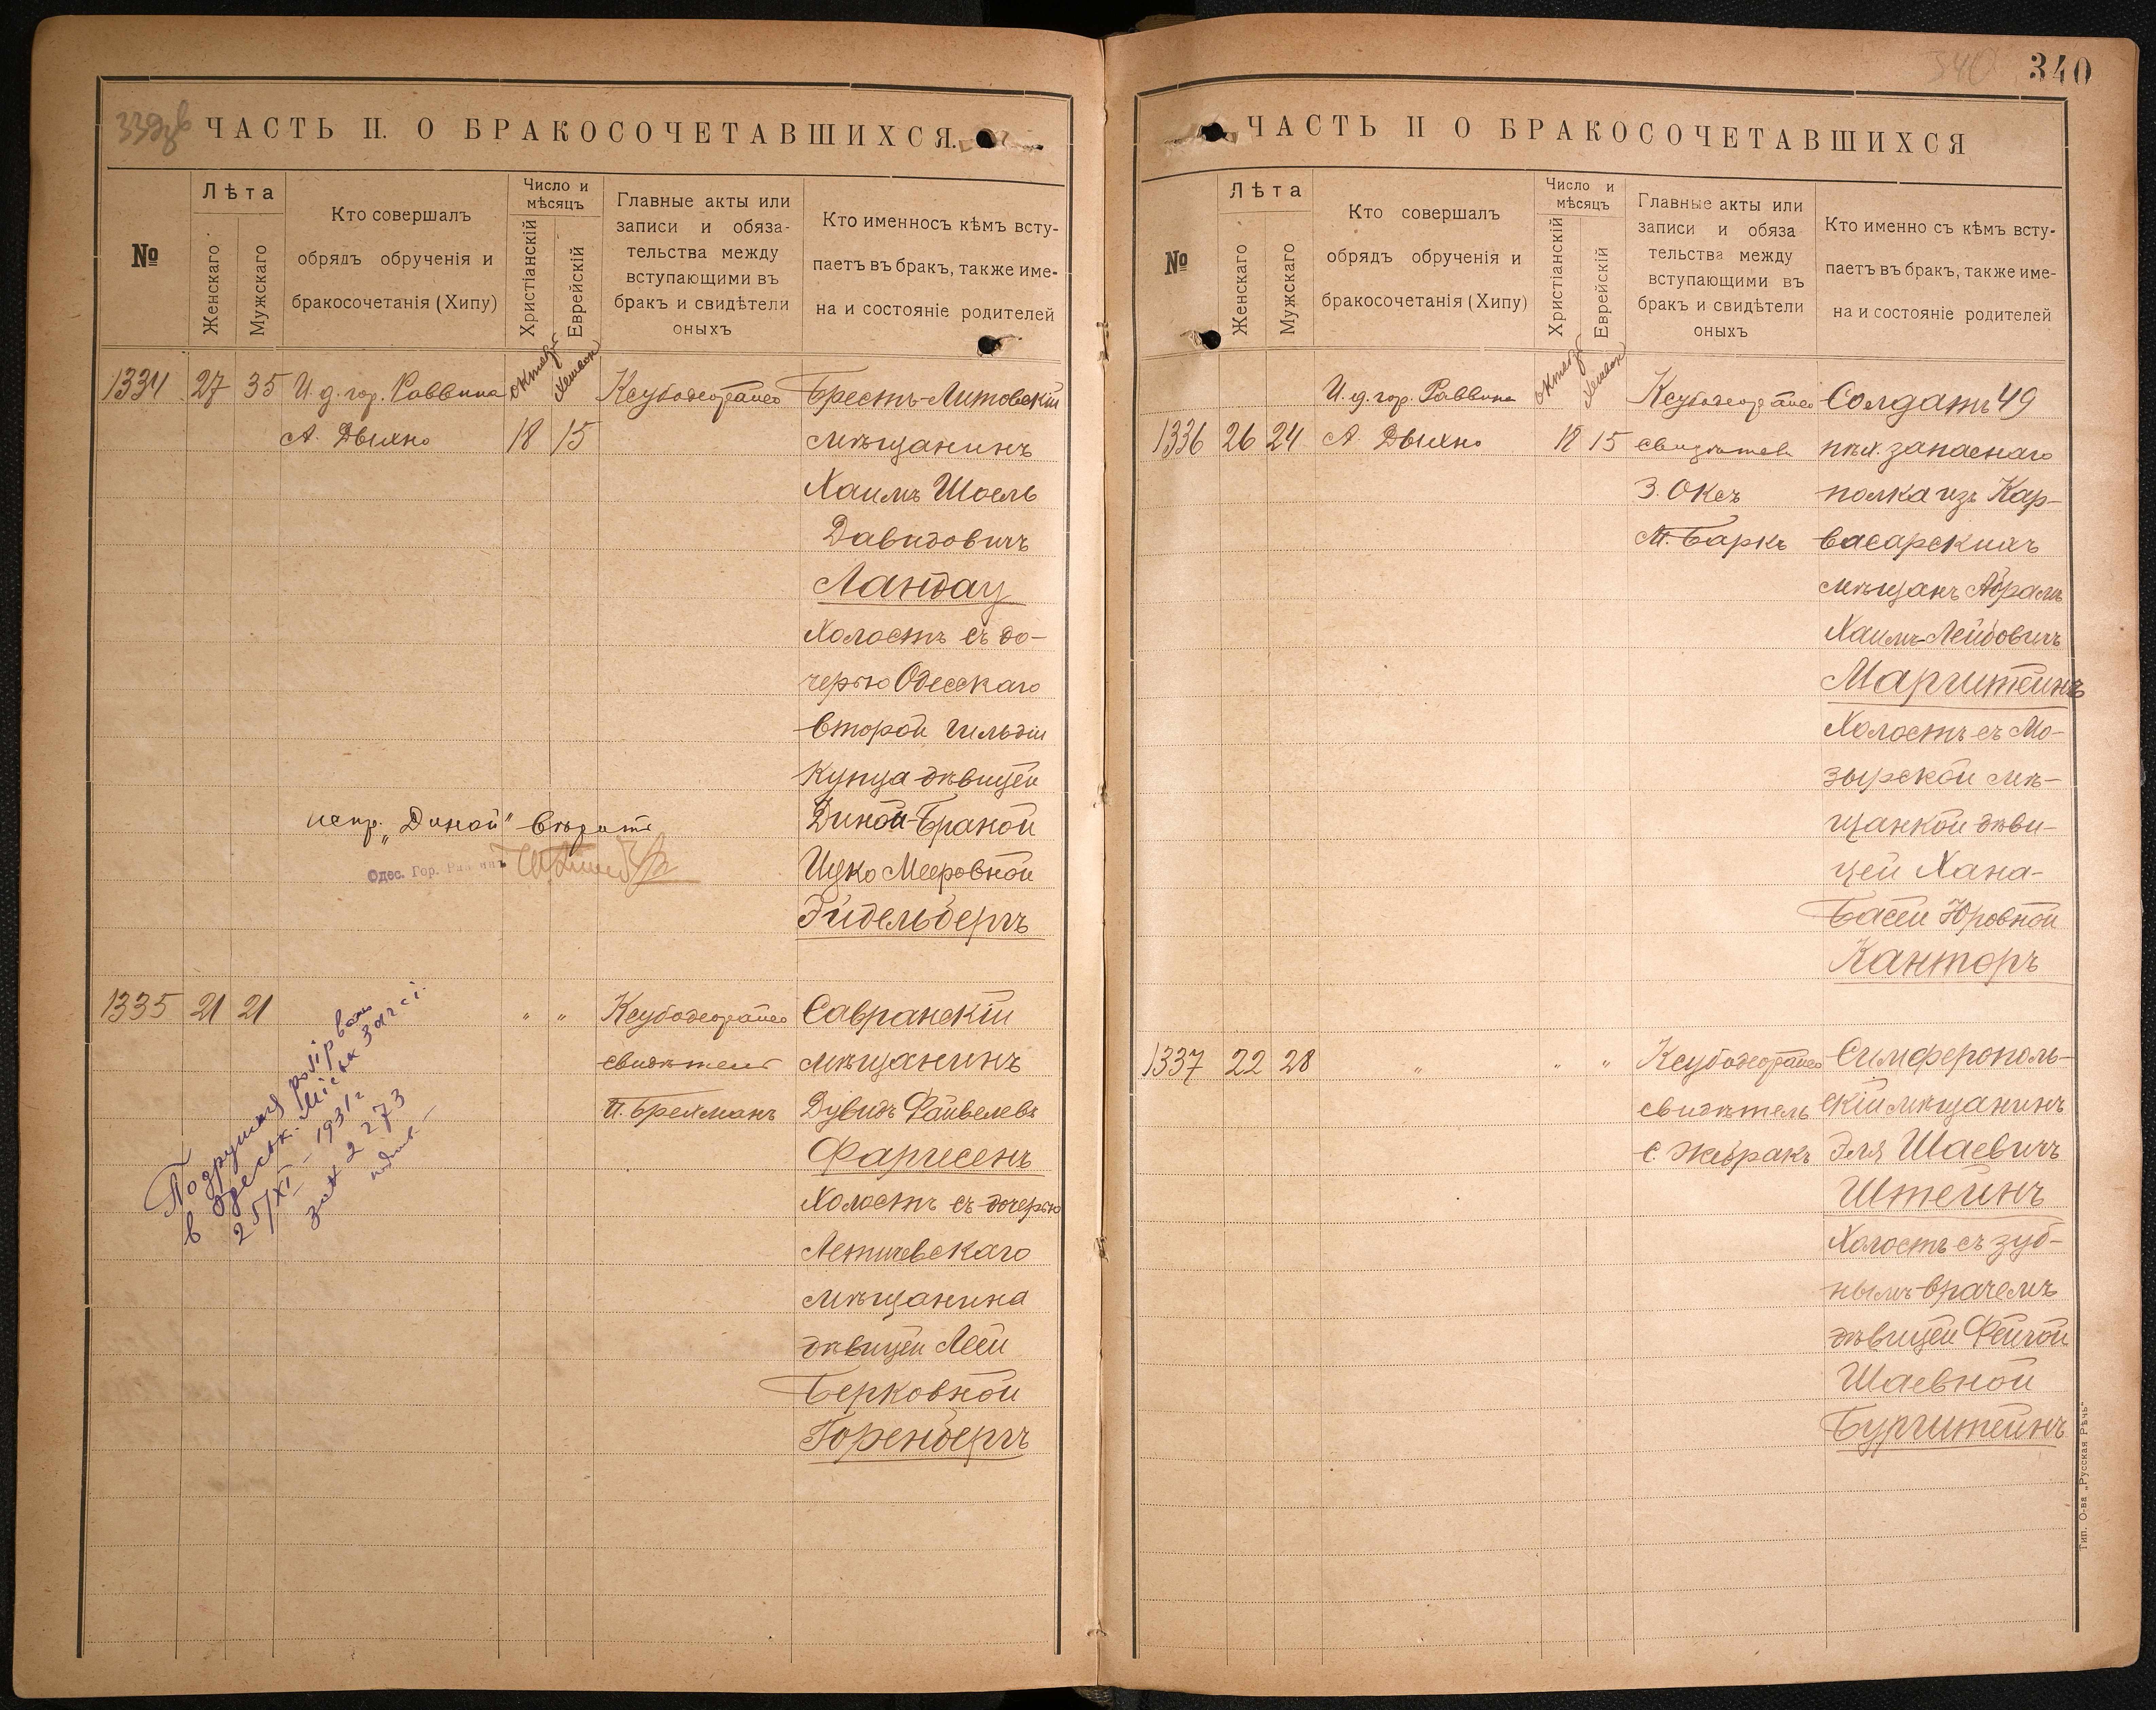 339 зв
ЧАСТЬ II. О БРАКОСОЧЕТАВШИХСЯ.
№
Лѣта
Женскаго
Мужскаго
Кто совершалъ
обрядъ обрученія и
бракосочетанія (Хипу)
Число и
мѣсяцъ
Христіанскій
Еврейскій
Главные акты или
записи и обяза-
тельства между
вступающими въ
бракъ и свидѣтели
оныхъ
Кто именносъ кѣмъ всту-
паетъ въ бракъ, также име-
на и состояніе родителей
1334 27 35 И. д. гор. Раввина
А. Дыхно
18 15
Брестъ-Литовскій
мѣщанинъ
Хаимъ Шоель
Давидовичъ
Ландау
Холостъ съ до-
черью Одесскаго
второй гильдіи
Купца дѣвицей
Диной-Браной
Ицко Мееровной
Эйдельбергъ
испр. „Диной" вѣрить
Одес. Гор. Раввинъ
1335 21 21 „ „
свидѣтель
И. Брейманъ
Савранскій
мѣщанинъ
Дувидъ Файвелевъ
Фаргесенъ
Холостъ съ дочерью
Летичевскаго
мѣщанина
дѣвицей Леей
Берковной
Горенбергъ
Подружжя розірвано
в Одеськ. Міськ Загсі
25/XI – 1931 г
зах 2273
340
340
ЧАСТЬ II О БРАКОСОЧЕТАВШИХСЯ
№
Лѣта
Женскаго
Мужскаго
Кто совершалъ
обрядъ обрученія и
бракосочетанія (Хипу)
Число и
мѣсяцъ
Христіанскій
Еврейскій
Главные акты или
записи и обяза
тельства между
вступающими въ
бракъ и свидѣтели
оныхъ
Кто именно съ кѣмъ всту-
паетъ въ бракъ, также име-
на и состояніе родителей
1336 26 24
И. д. гор. Раввина
А. Дыхно
18 15
свидѣтели
З. Оксъ
М. Баркъ
Солдатъ 49
пѣх. запаснаго
полка изъ Кар-
васарскихъ
мѣщанъ Абрамъ
Хаимъ-Лейбовичъ
Маргштейнъ
Холостъ съ Мо-
зырской мѣ-
щанкой дѣви-
цей Хана-
Басей Юровной
Канторъ
1337 22 28 „ „ „
свидѣтель
С. Жебракъ
Симферополь-
скій мѣщанинъ
Эля Шаевичъ
Штейнъ
Холостъ съ зуб-
нымъ врачемъ
дѣвицей Фейгой
Шаевной
Бургштейнъ
Тип. О-ва „Русская Рѣчь"